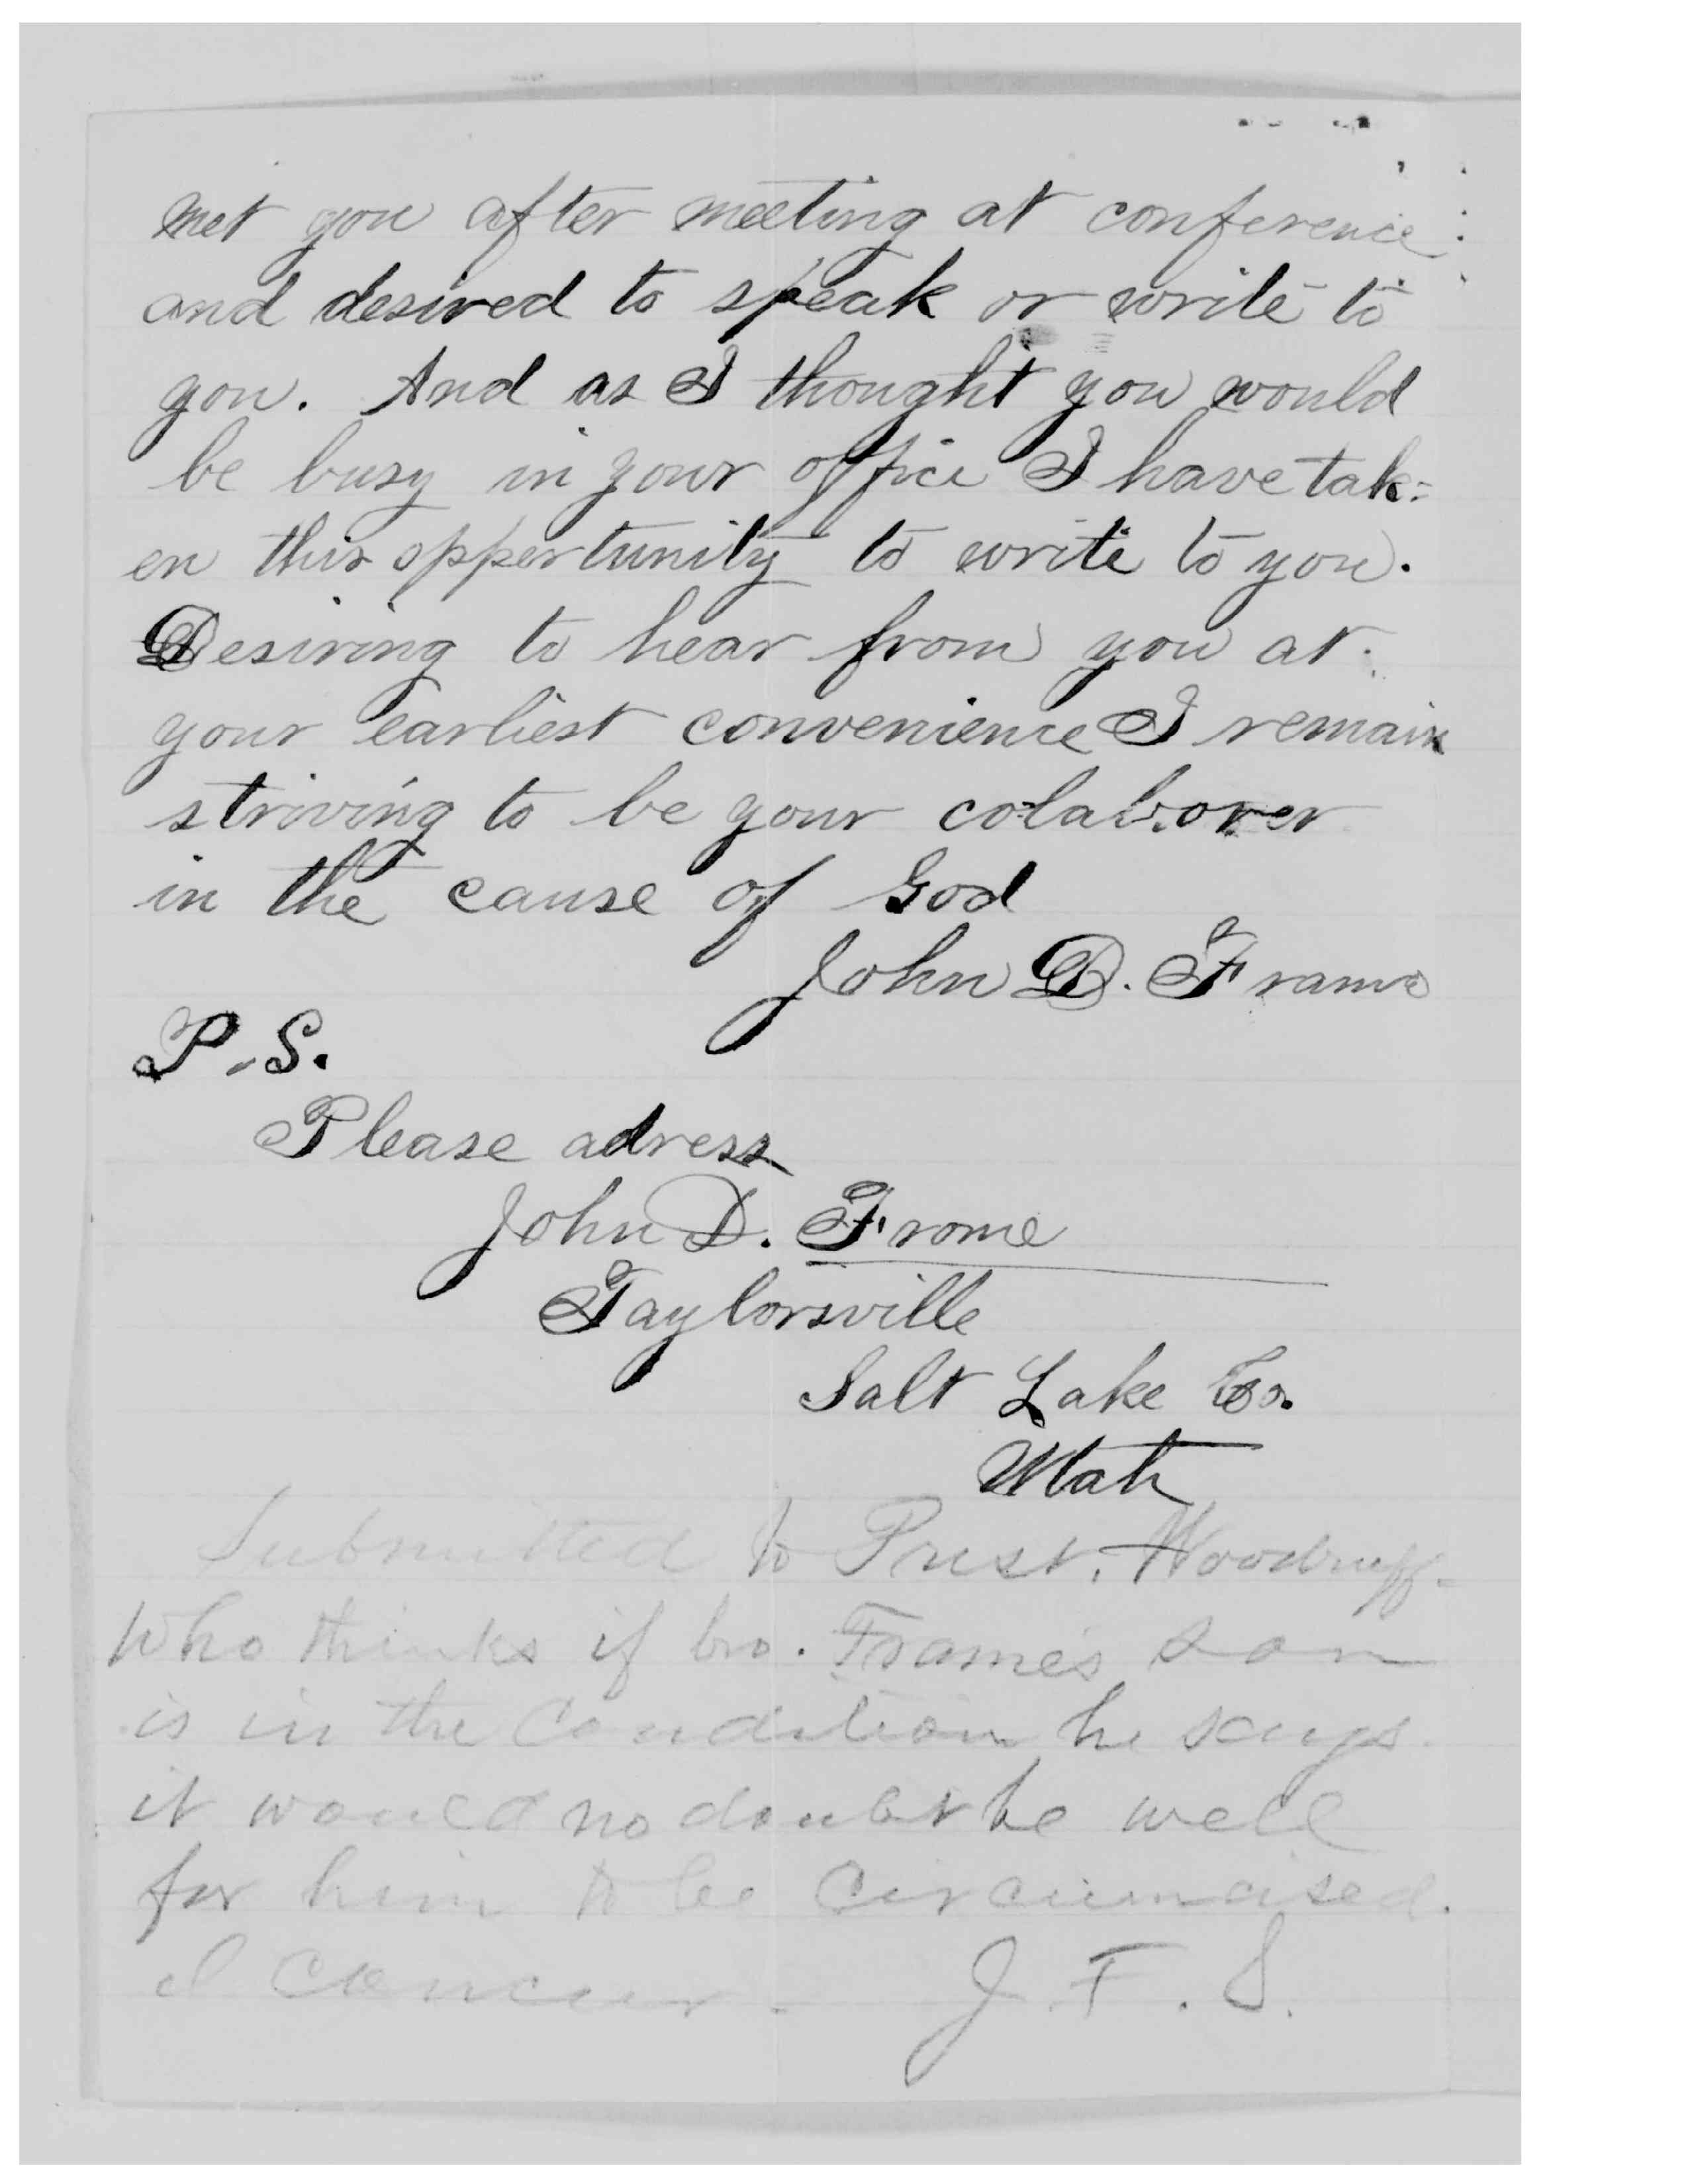 met you after meeting at conference
and desired to speak or write to
you. And as I thought you would
be busy in your office I have tak=
en this oppertunity to write to you.
Desiring to hear from you at
your earliest convenience I remain
striving to be your colaborer
in the cause of God
John D. Frame
P.S.
Please adress
John D. Frome
Taylorsville
Salt Lake Co.
Utah
Submitted to Prest. Woodruff-
Who thinks if bro. Frame's son
is in the Condition he says
it would no doubt be well
for him to be Circumcised.
I Concur - J. F. S.